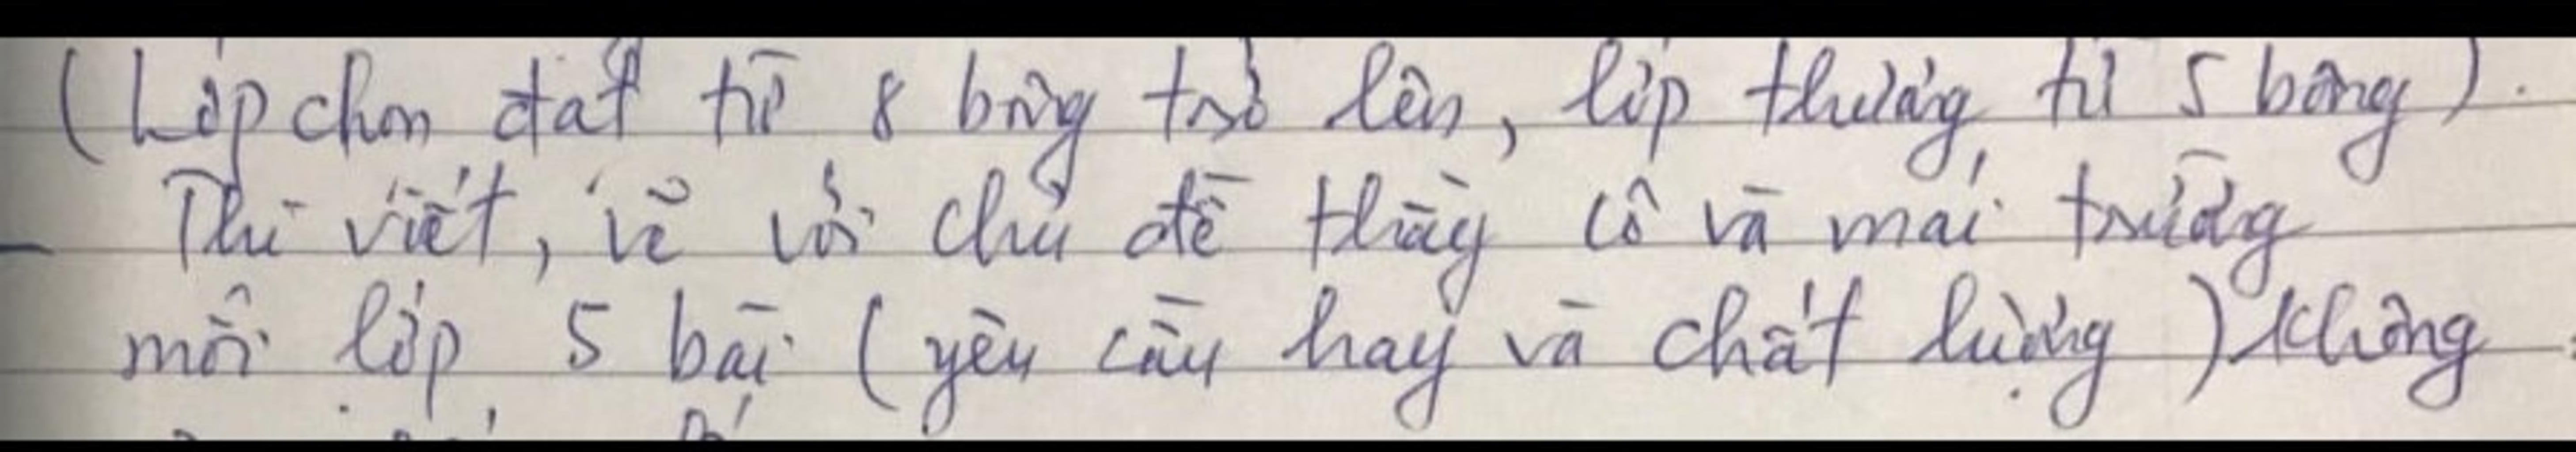 (Lớp chọn đạt từ 8 bông trở lên, lớp thường từ 5 bông).
- Thi viết, vẽ với chủ đề thầy cô và mái trường
mỗi lớp 5 bài (yêu cầu hay và chất lượng) không